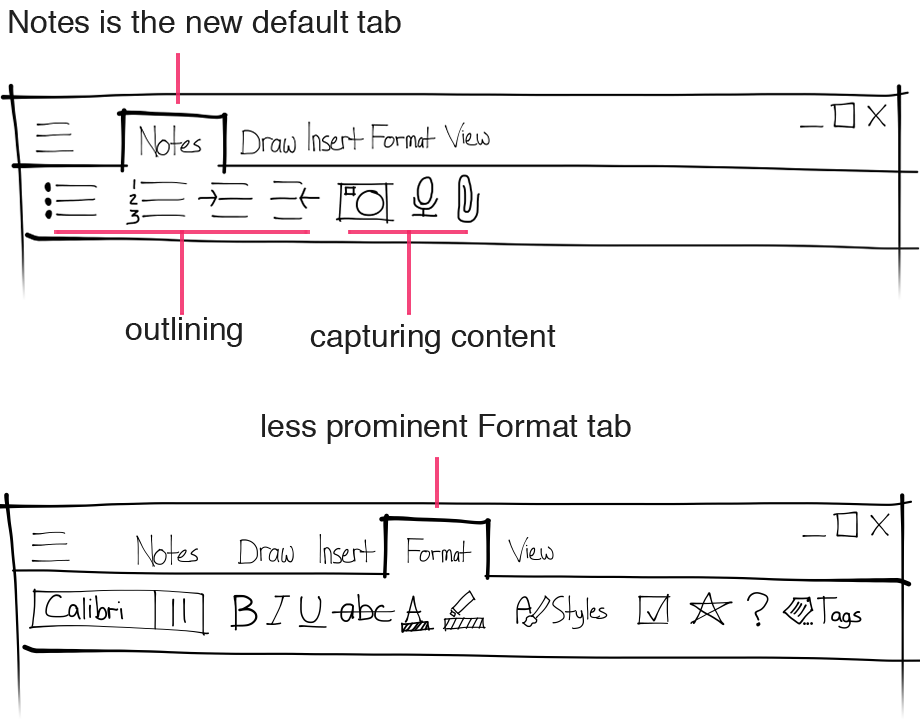 Notes is the new default tab
Notes Draw Insert Format View
1
2
3
outlining
capturing content
less prominent Format tab
Notes Draw Insert Format View
Calibri 11 B I U abc A A Styles ? Tags